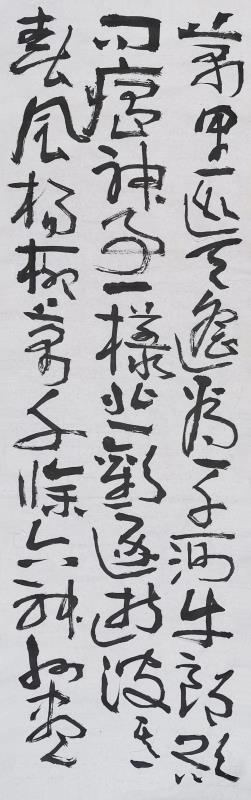 萬里巡天遙看一千河牛郎欲
問瘟神事一樣悲歡逐逝波其二
春風楊柳萬千條六神州盡